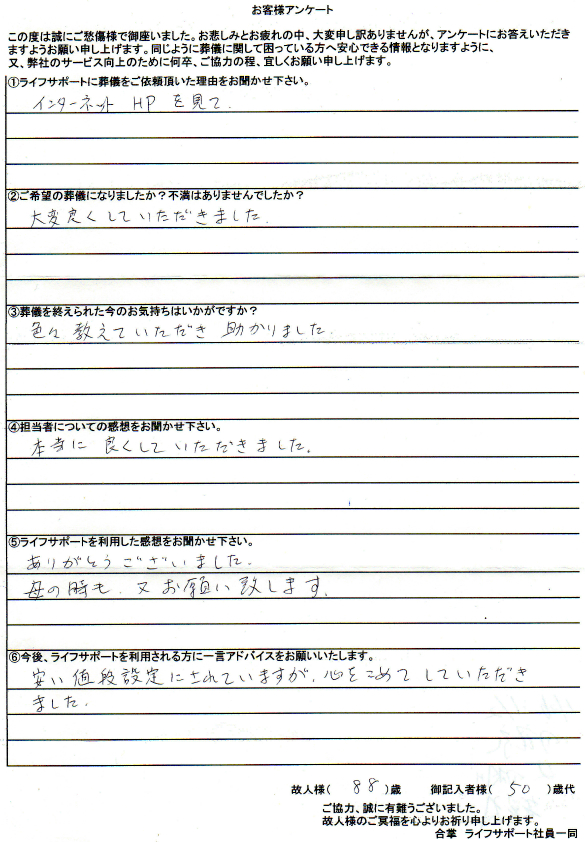 お客様アンケート
この度は誠にご愁傷様で御座いました。お悲しみとお疲れの中、大変申し訳ありませんが、アンケートにお答えいただき
ますようお願い申し上げます。同じように葬儀に関して困っている方へ安心できる情報となりますように、
又、弊社のサービス向上のために何卒、ご協力の程、宜しくお願い申し上げます。
①ライフサポートに葬儀をご依頼頂いた理由をお聞かせ下さい。
インターネット HP を見て.
②ご希望の葬儀になりましたか？不満はありませんでしたか？
大変良くしていただきました.
③葬儀を終えられた今のお気持ちはいかがですか？
色々教えていただき 助かりました.
④担当者についての感想をお聞かせ下さい。
本当に 良くしていただきました.
⑤ライフサポートを利用した感想をお聞かせ下さい。
ありがとうございました.
母の時も. 又お願い致します.
⑥今後、ライフサポートを利用される方に一言アドバイスをお願いいたします。
安い値段設定にされていますが. 心をこめてしていただき
ました.
故人様( 88 )歳 御記入者様( 50 )歳代
ご協力、誠に有難うございました。
故人様のご冥福を心よりお祈り申し上げます。
合掌 ライフサポート社員一同